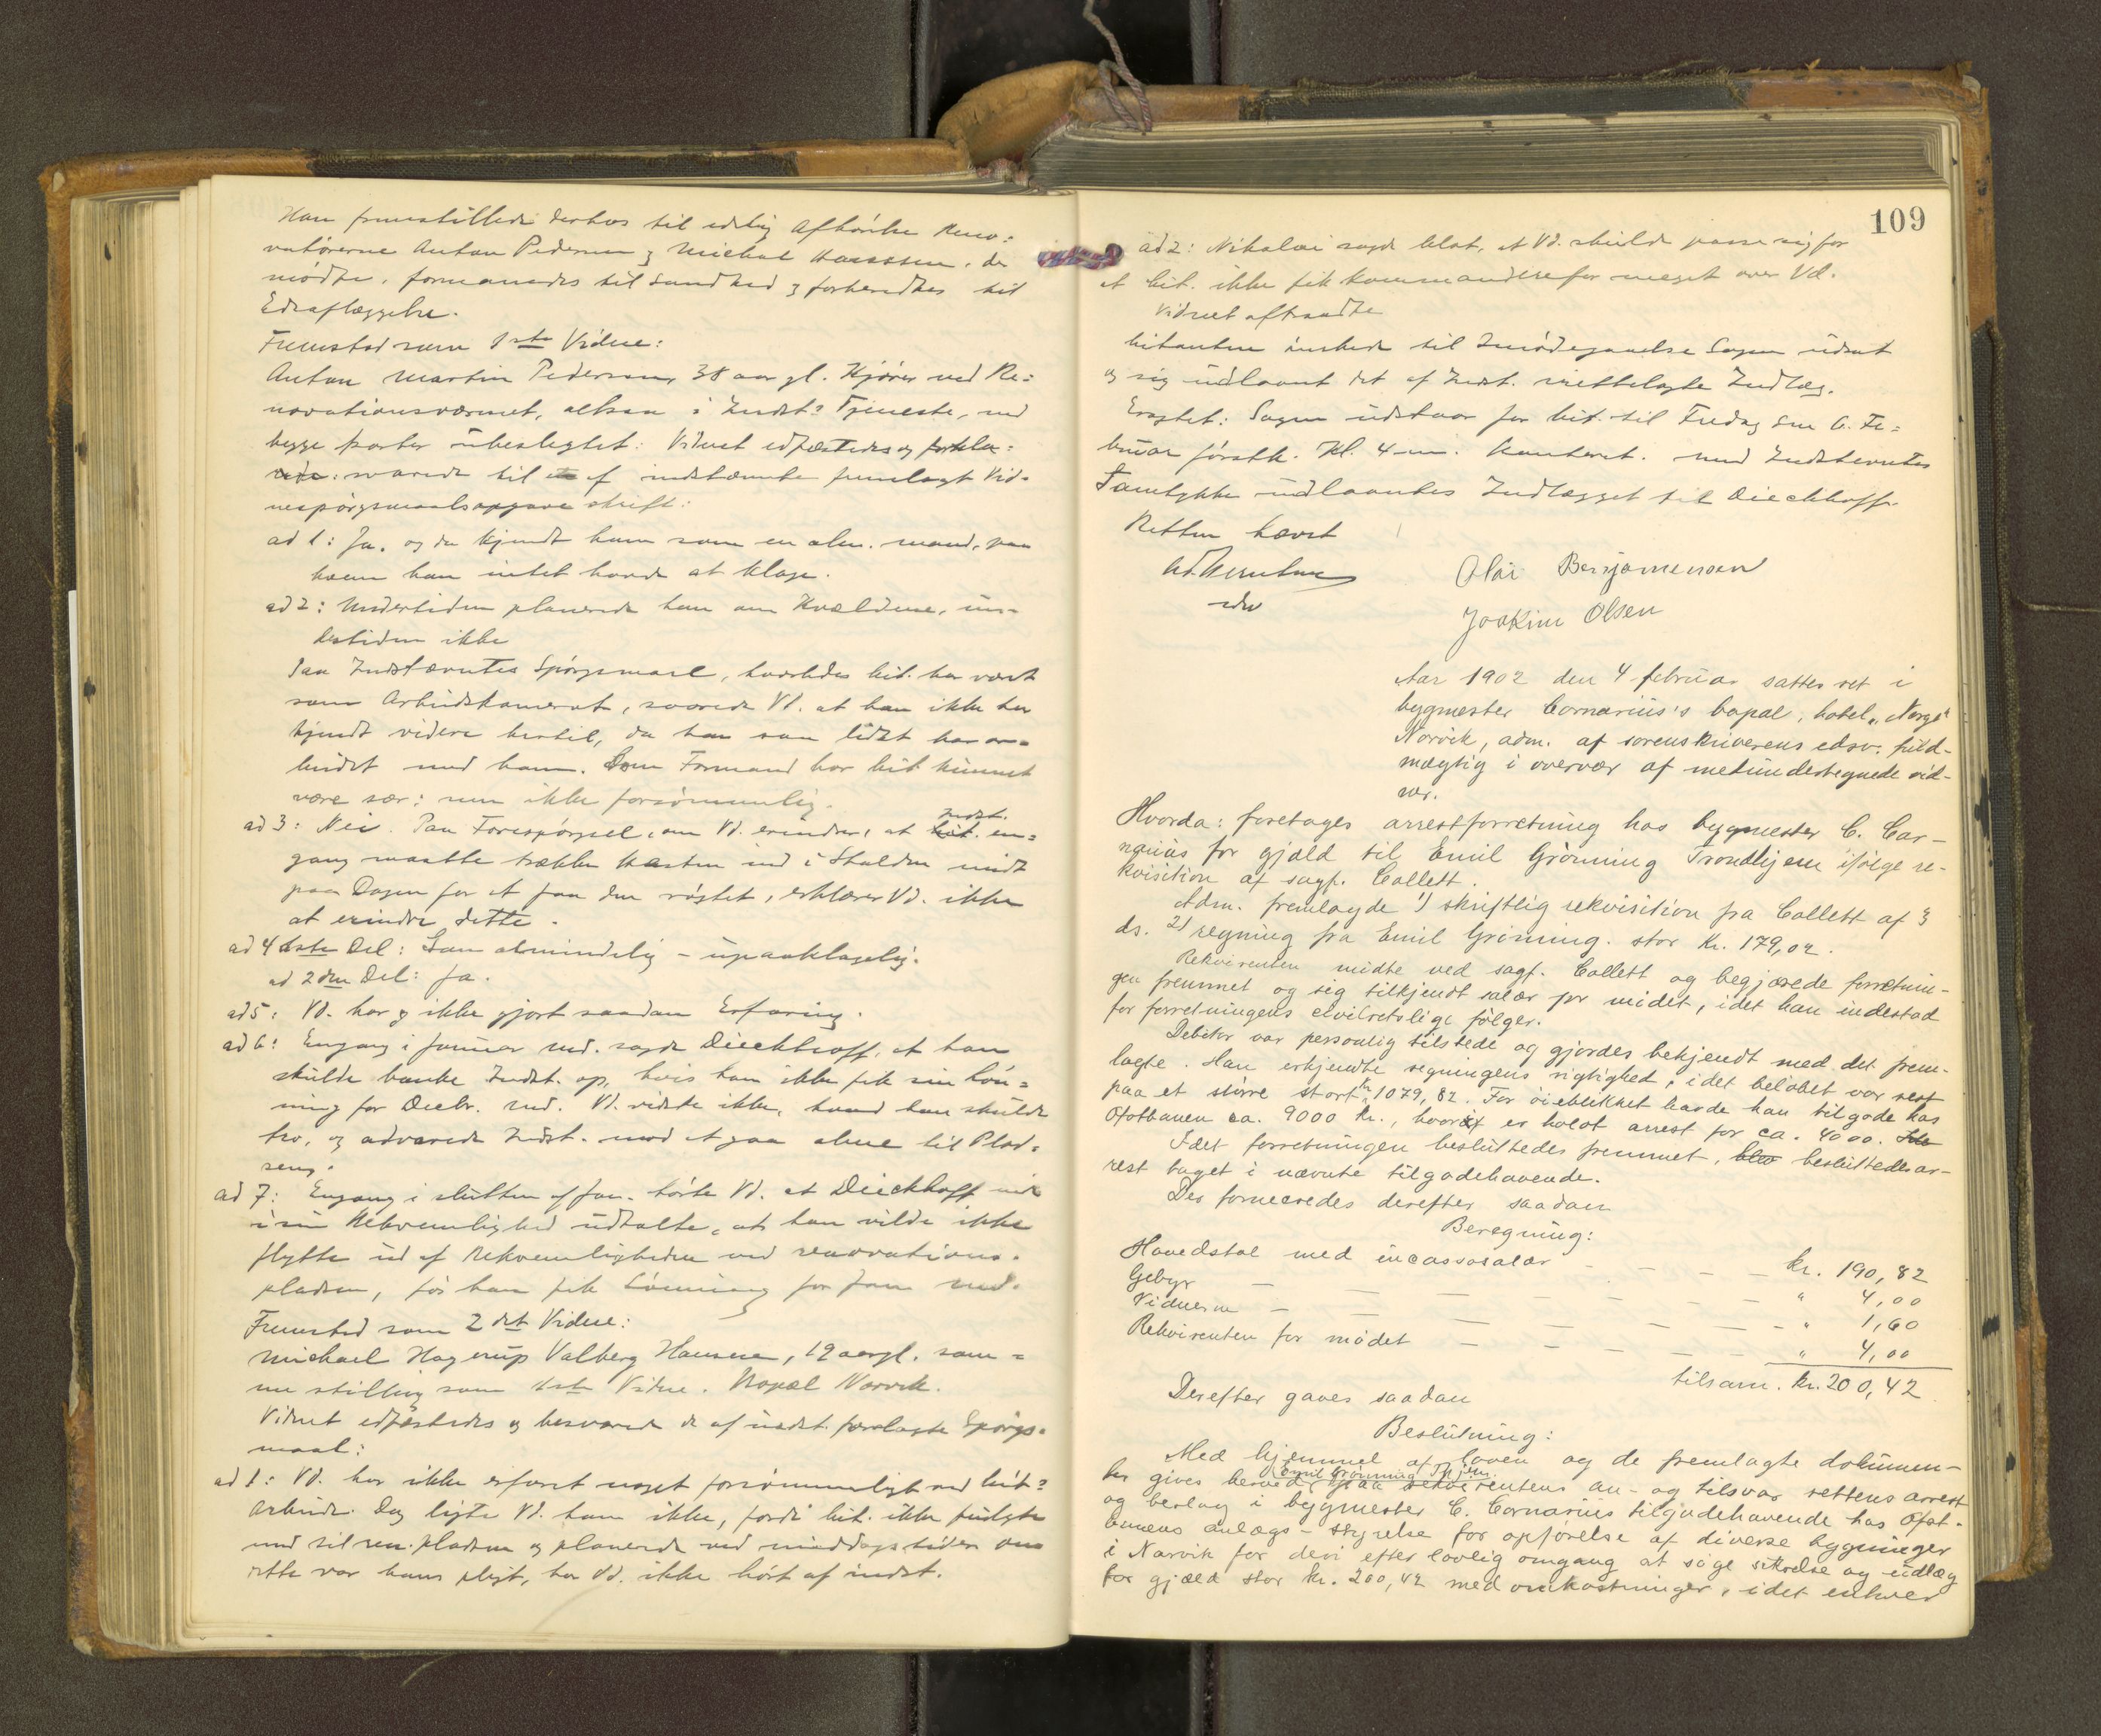 Han fremstillede derhos til edelig Afhørelse Reno-
vatørerne Anton Pedersen og Michal Hanssen, de
mødte, formanedes til Sandhed og forberedtes til
Edsaflæggelse.
Fremstod som 1ste Vidne:
Anton Martin Pedersen, 38 aar gl. Kjører ved Re=
novationsvæsenet, altsaa i Indst? Tjeneste, med
begge parter ubeslegtet: Vidnet edfæstedes og forkla=
rede: svarede til af indstævnte fremlagt Vid-
nespørgsmaalsopgave skrift:
ad 1: Ja, og da kjendt ham som en alm. mand, paa
hvem han intet havde at klage.
ad 2: Undertiden planerede han om Kvældene, un-
dertiden ikke
Paa Indstævntes Spørgsmaal, hvorledes Cit. har været
som Arbeidskamerat, svarede Vd. at han ikke har
kjendt videre hertil, da han saa lidet har ar=
beidet med ham. Som Formand har Cit. kunnet
være sær: men ikke forsømmelig.
Indst.
ad 3: Nei. Paa Forespørgsel, om Vd. erindrer, at Cit. en=
gang maatte trække Hesten ind i Stalden midt
paa Dagen for at faa den røgtet, erklærer Vd. ikke
at erindre dette.
ad 4 1ste Del: Som almindelig - upaaklagelig.
ad 2den Del: Ja.
ad 5: Vd. har og ikke gjort saadan Erfaring.
ad 6: Engang i Januar md. sagde Dieckhoff, at han
skulde banke Indst. op, hvis han ikke fik sin Løn=
ning for Decbr. md. Vd. vidste ikke, hvad han skulde
tro, og advarede Indst. mod at gaa alene til Plad=
sen.
ad 7: Engang i slutten af Jan. hørte Vd. at Dieckhoff
i sin Bekvemlighed udtalte, at han vilde ikke
flytte ud af Bekvemligheden ved renovations-
pladsen, før han fik Lønning for Jan md.
Fremstod som 2det Vidne:
Michael Hagerup Valberg Hansen, 19 aar gl. sam=
me stilling som 1ste Vidne. Bopæl Narvik.
Vidnet edfæstedes og besvarede de af indst. forelagte Spørgs-
maal:
ad 1: Vd. har ikke erfaret noget forsømmeligt ved Cit?
Arbeide. Dog ligte Vd. ham ikke, fordi Cit. ikke fulgte
med til ren.pladsen og planerede ved middagstider. Om
dette var hans pligt, har Vd. ikke hørt af indst.
109
ad 2: Nikolai sagde blot, at Vd. skulde passe sig for
at Cit. ikke fik kommandere for meget over Vd.
Vidnet aftraadte
Citanten ønskede til Imødegaaelse Sagen udsat
og sig udlaant det af Indst. irettelagte Indlæg.
Eragtet: Sagen udstaar for Cit. til Fredag den 6. Fe=
bruar førstk. Kl. 4 em. Kontoret. Med Indstevntes
Samtykke udlaantes Indlægget til Dieckhoff.
Retten hævet
Olai Benjamensen
Joakim Olsen
Aar 1902 den 4 februar sattes ret i
bygmester Cornarius's bopæl, hotel „Norge"
Narvik, adm. af sorenskriverens edsv. fuld-
mægtig i overvær af medundertegnede vid-
ner.
Hvorda: foretages arrestforretning hos bygmester C. Cor-
narius for gjæld til Emil Grønning Trondhjem ifølge re-
kvisition af sagf. Collett.
Adm. fremlagde 1) skriftlig rekvisition fra Collett af 3
ds. 2) regning fra Emil Grönning. stor Kr. 179,02.
Rekvirenten mødte ved sagf. Collett og begjærede forretnin-
gen fremmet og sig tilkjendt salær for mødet, idet han indestod
for forretningens civilretslige følger.
Debitor var personlig tilstede og gjordes bekjendt med det frem-
lagte. Han erkjendte regningens rigtighed, idet beløbet var rest
paa et større stort kr 1079,82. For øieblikket havde han tilgode hos
Ofotbanen ca. 9000 kr., hvoraf er holdt arrest for ca. 4000.
Idet forretningen besluttedes fremmet, blev besluttedes ar-
rest taget i nævnte tilgodehavende.
Der formeeredes derefter saadan
Beregning:
Hovedstol med incassosalær - - - - kr. 190,82
Gebyr - - - - - - - " 4,00
Vidnerne - - - - - - - " 1,60
Rekvirenten for mødet - - - - - " 4,00
tilsam. kr. 200,42
Derefter gaves saadan
Beslutning:
Med hjemmel af loven og de fremlagte dokumen-
Emil Grönning Thjem.
ter gives herved paa rekvirentens an- og tilsvar rettens arrest
og beslag i bygmester C. Cornarius tilgodehavende hos Ofot-
banens anlægs-styrelse for opførelse af diverse bygninger
i Narvik for deri efter lovlig omgang at søge sikkrelse og udlæg
for gjæld stor kr. 200,42 med omkostninger, idet enhver